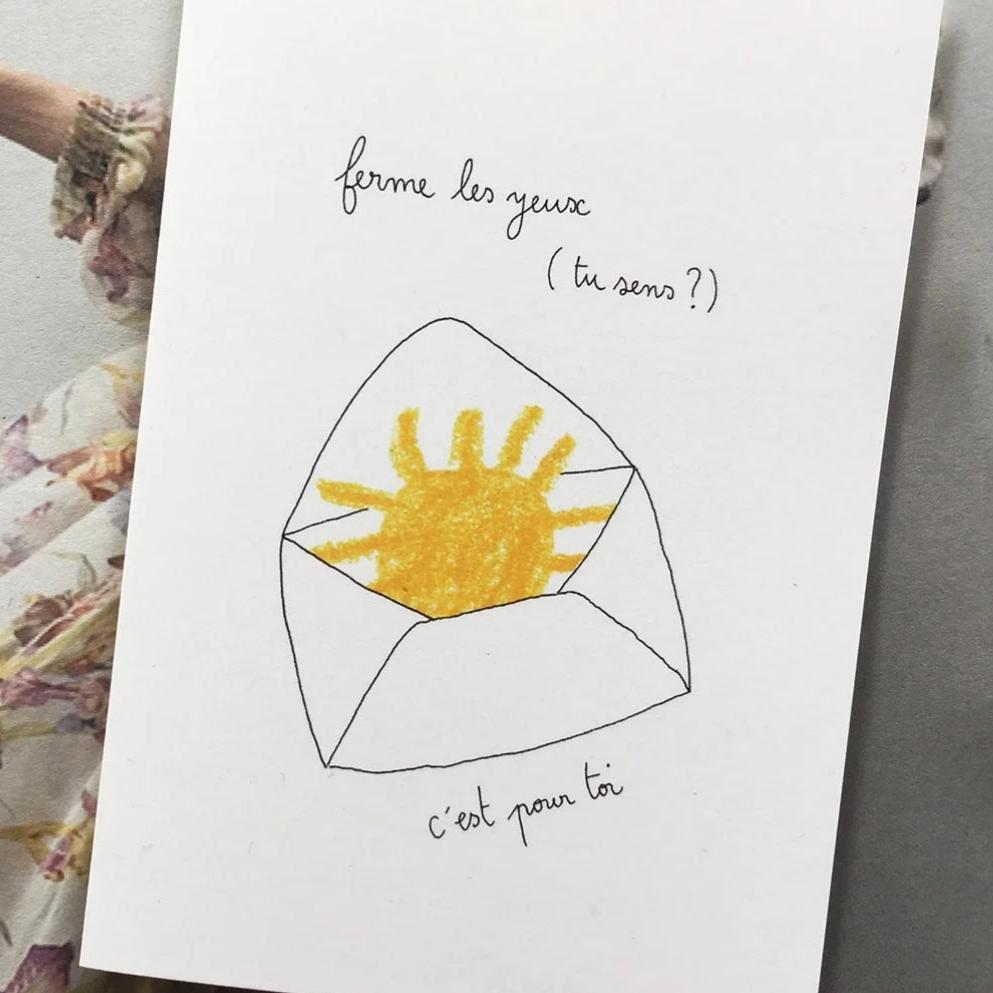 ferme les yeux
(tu sens ?)
c'est pour toi